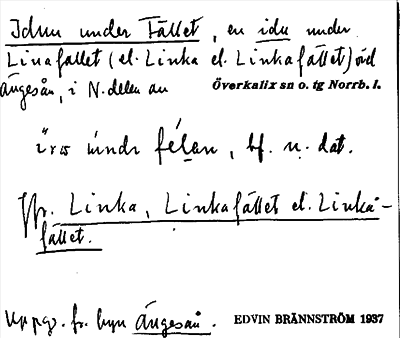 Idun under Fället, en idu under
Linafället (el. Linka el. Linkafället) vid
Ängesån, i N. delen av Överkalix sn o. tg Norrb. l.
undr félan, bf. n. dat.
Jfr. Linka, Linkafället el. Linka-
fället.
Uppg. fr. byn Ängesån. EDVIN BRÄNNSTRÖM 1937